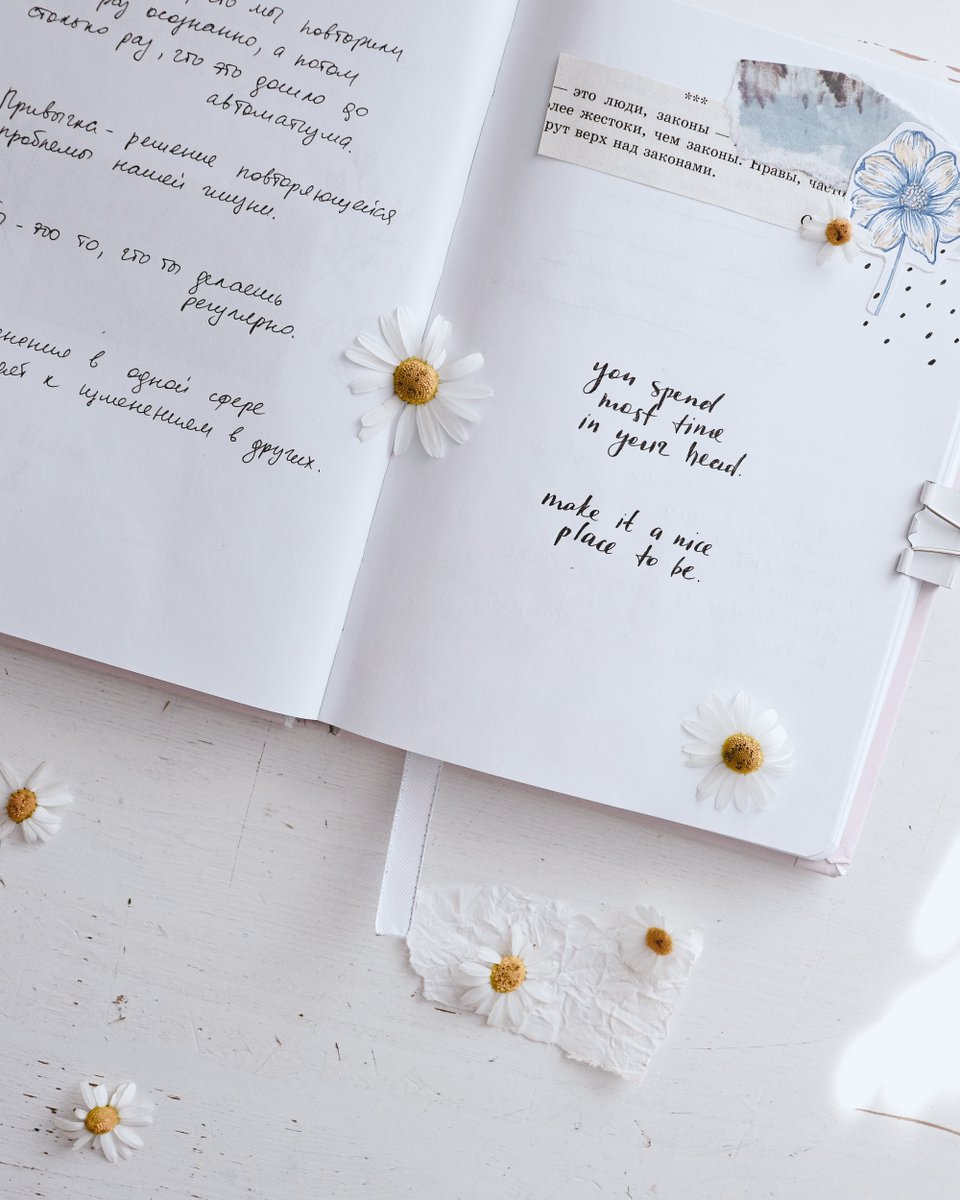 что мы повторили
раз осознанно, а потом
столько раз, что это дошло до
автоматизма.
Привычка - решение повторяющейся
проблемы нашей жизни.
- это то, что ты делаешь
регулярно.
в одной сфере
к изменениям в других.
***
— это люди, законы —
жестоки, чем законы. Нравы, часто
верх над законами.
you spend
most time
in your head.
make it a nice
place to be.